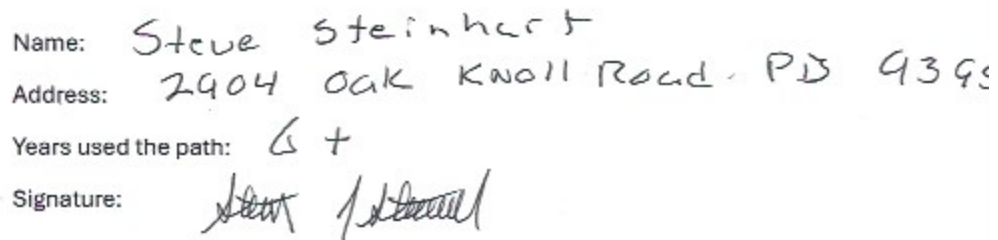 Name: Steve Steinhart
Address: 2904 Oak Knoll Road. PB 939
Years used the path: 6 +
Signature: